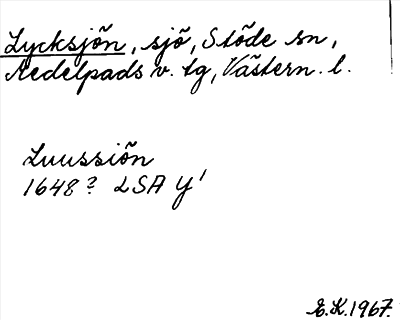 Lycksjön, sjö, Stöde sn,
Medelpads v. tg, Västern. l.
Luussiön
1648? LSA Y'
E.K. 1967.